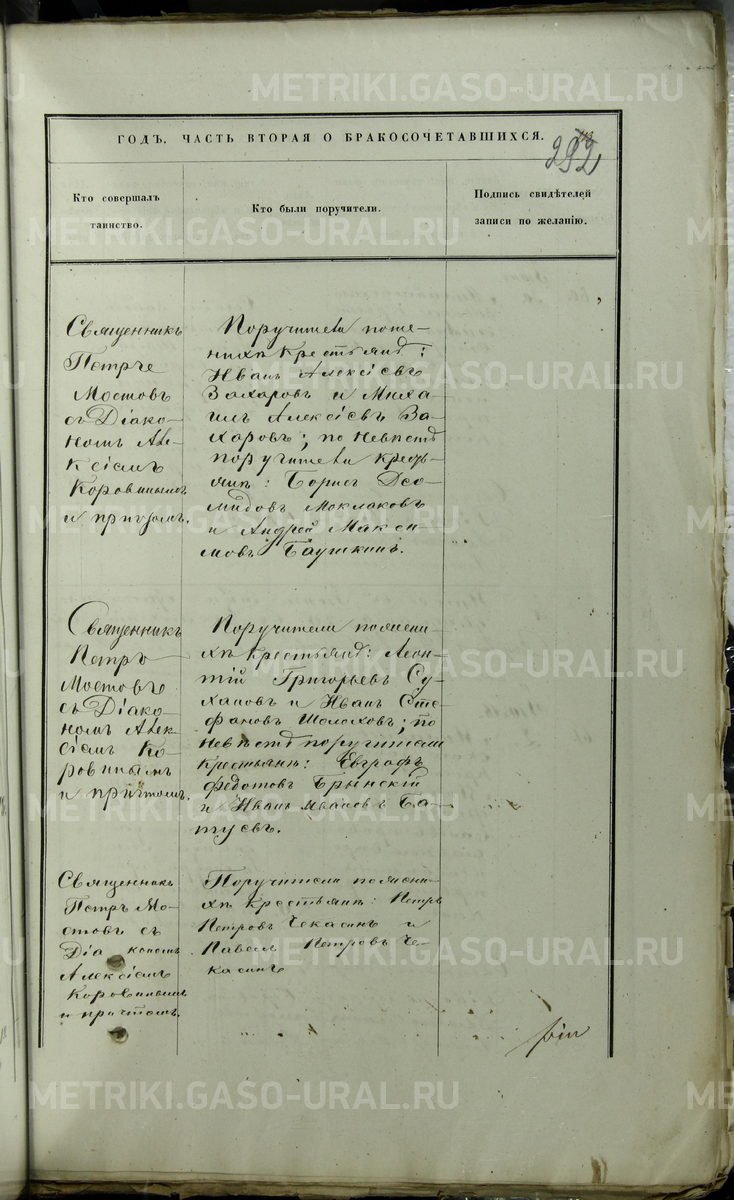 METRIKI.GASO-URAL.RU
ГОДЪ. ЧАСТЬ ВТОРАЯ О БРАКОСОЧЕТАВШИХСЯ.
292
Кто совершалъ
таинство.
Кто были поручители.
Подпись свидѣтелей
записи по желанію.
METRIKI.GASO-URAL.RU
Священникъ
Петръ
Мостовъ
съ Діако-
номъ Але-
ксіемъ
Коровинымъ
и причтомъ.
Поручители по же-
нихѣ крестьяне:
Иванъ Алексіевъ
Захаровъ и Миха-
илъ Алексіевъ За-
харовъ; по невѣстѣ
поручители кресть-
яне: Борисъ Део-
мидовъ Моклаковъ
и Андрей Макси-
мовъ Баушкинъ.
METRIKI.GASO-URAL.RU
Священникъ
Петръ
Мостовъ
съ Діако-
номъ Алек-
сіемъ Ко-
ровинымъ
и причтомъ.
Поручители по жени-
хѣ крестьяне: Леон-
тій Григорьевъ Су-
хановъ и Иванъ Сте-
фановъ Шолоховъ; по
невѣстѣ поручители
крестьяне: Евграфъ
Федотовъ Брынскій
и Иванъ Ивановъ Ба-
туевъ.
METRIKI.GASO-URAL.RU
Священникъ
Петръ Мо-
стовъ съ
Діакономъ
Алексіемъ
Коровинымъ
и причтомъ.
Поручители по жени-
хѣ крестьяне: Петръ
Петровъ Чекасинъ и
Павелъ Петровъ Че-
касинъ
METRIKI.GASO-URAL.RU